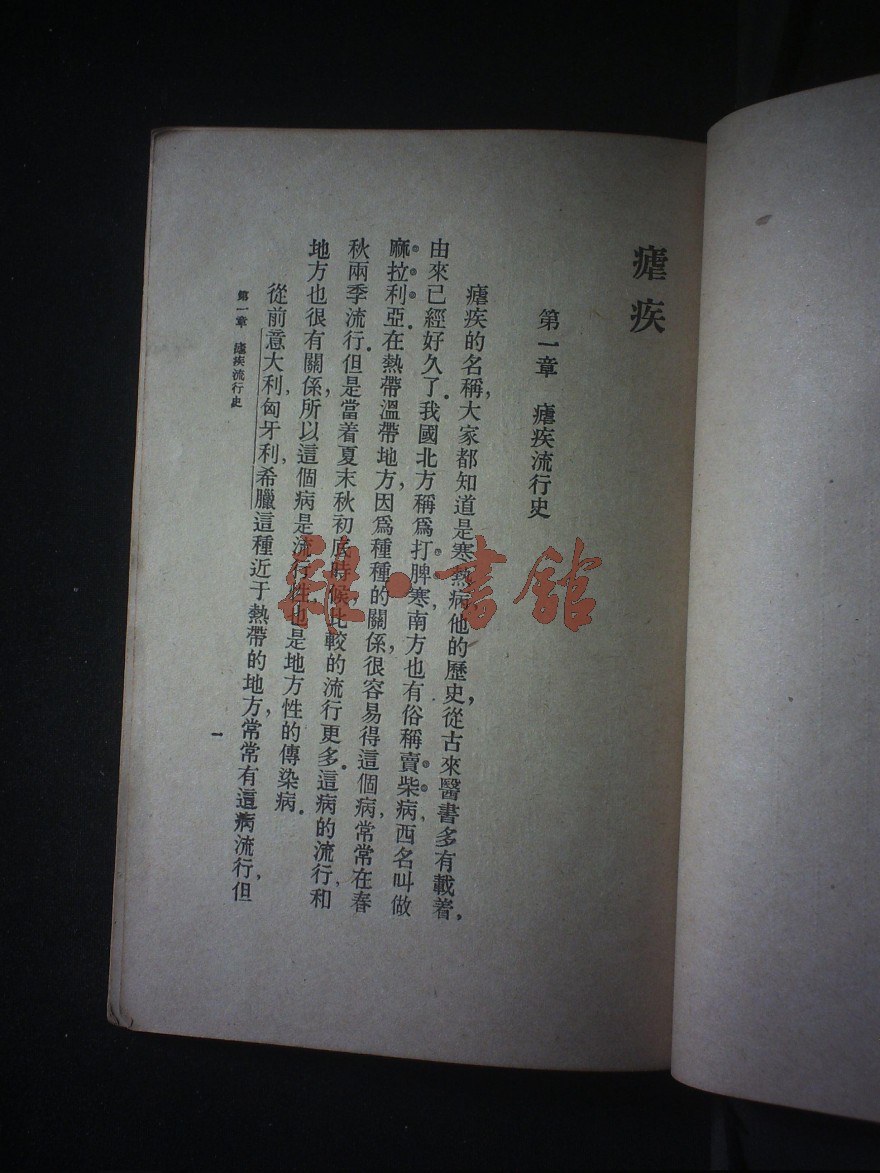 瘧疾
第一章　瘧疾流行史
瘧疾的名稱，大家都知道是寒熱病他的歷史，從古來醫書多有載着，
由來已經好久了．我國北方稱爲打脾寒，南方也有俗稱賣柴病，西名叫做
麻拉利亞．在熱帶溫帶地方，因爲種種的關係，很容易得這個病，常常在春
秋兩季流行．但是當着夏末秋初底時候，比較的流行更多．這病的流行，和
地方也很有關係，所以這個病是流行性，也是地方性的傳染病．
從前意大利，匈牙利，希臘這種近于熱帶的地方，常常有這病流行，但
第一章　瘧疾流行史
一
雜·書館